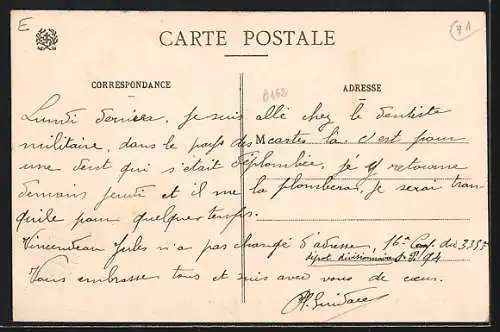 E
71
CARTE POSTALE
CORRESPONDANCE
ADRESSE
Lundi dernier, je suis allé chez le dentiste
militaire, dans le pays des Mcastes là. c'est pour
une dent qui s'était déplombée, je y retourne
demain jeudi et il me la plombera, je serai tran-
quile pour quelques temps.
Vincendeau Jules n'a pas changé d'adresse, 16e Comp. du 335e
dépot divisionnaire S.P. 94
Vous embrasse tous et suis avec vous de cœur.